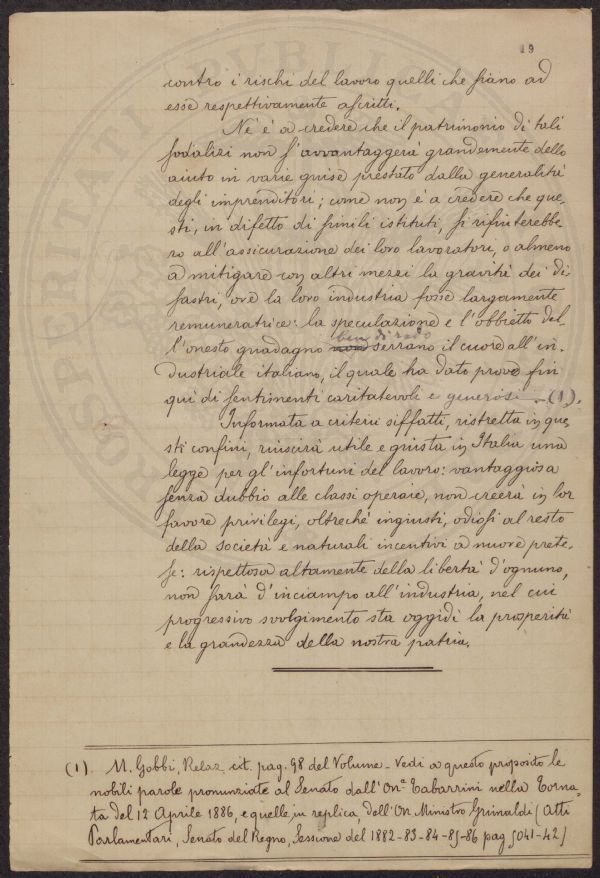 19
contro i rischi del lavoro quelli che siano ad
esse respettivamente ascritti.
Nè è a credere che il patrimonio di tali
sodalizi non s'avvantaggerà grandemente dello
aiuto in varie guise prestato dalla generalità
degli imprenditori; come non è a credere che que-
sti, in difetto di simili istituti, si rifiuterebbe-
ro all'assicurazione dei loro lavoratori, o almeno
a mitigare con altri mezzi la gravità dei di-
sastri, ove la loro industria fosse largamente
remuneratrice: la speculazione e l'obbietto del-
ben di rado
l'onesto guadagno non serrano il cuore all'in-
dustriale italiano, il quale ha dato prove fin
qui di sentimenti caritatevoli e generosi (1).
Informata a criterii siffatti, ristretta in que-
sti confini, riuscirà utile e giusta in Italia una
legge per gl'infortuni del lavoro: vantaggiosa
senza dubbio alle classi operaie, non creerà in lor
favore privilegi, oltreché ingiusti, odiosi al resto
della società e naturali incentivi a nuove prete-
se: rispettosa altamente della libertà d'ognuno,
non sarà d'inciampo all'industria, nel cui
progressivo svolgimento sta oggidì la prosperità
e la grandezza della nostra patria.
(1). M. Gobbi, Relaz. cit. pag. 98 del Volume - Vedi a questo proposito le
nobili parole pronunziate al Senato dall'On.e Tabarrini nella torna-
ta del 12 Aprile 1886, e quelle, in replica, dell'On. Ministro Grimaldi (Atti
Parlamentari, Senato del Regno, Sessione del 1882-83-84-85-86 pag. 5041-42)